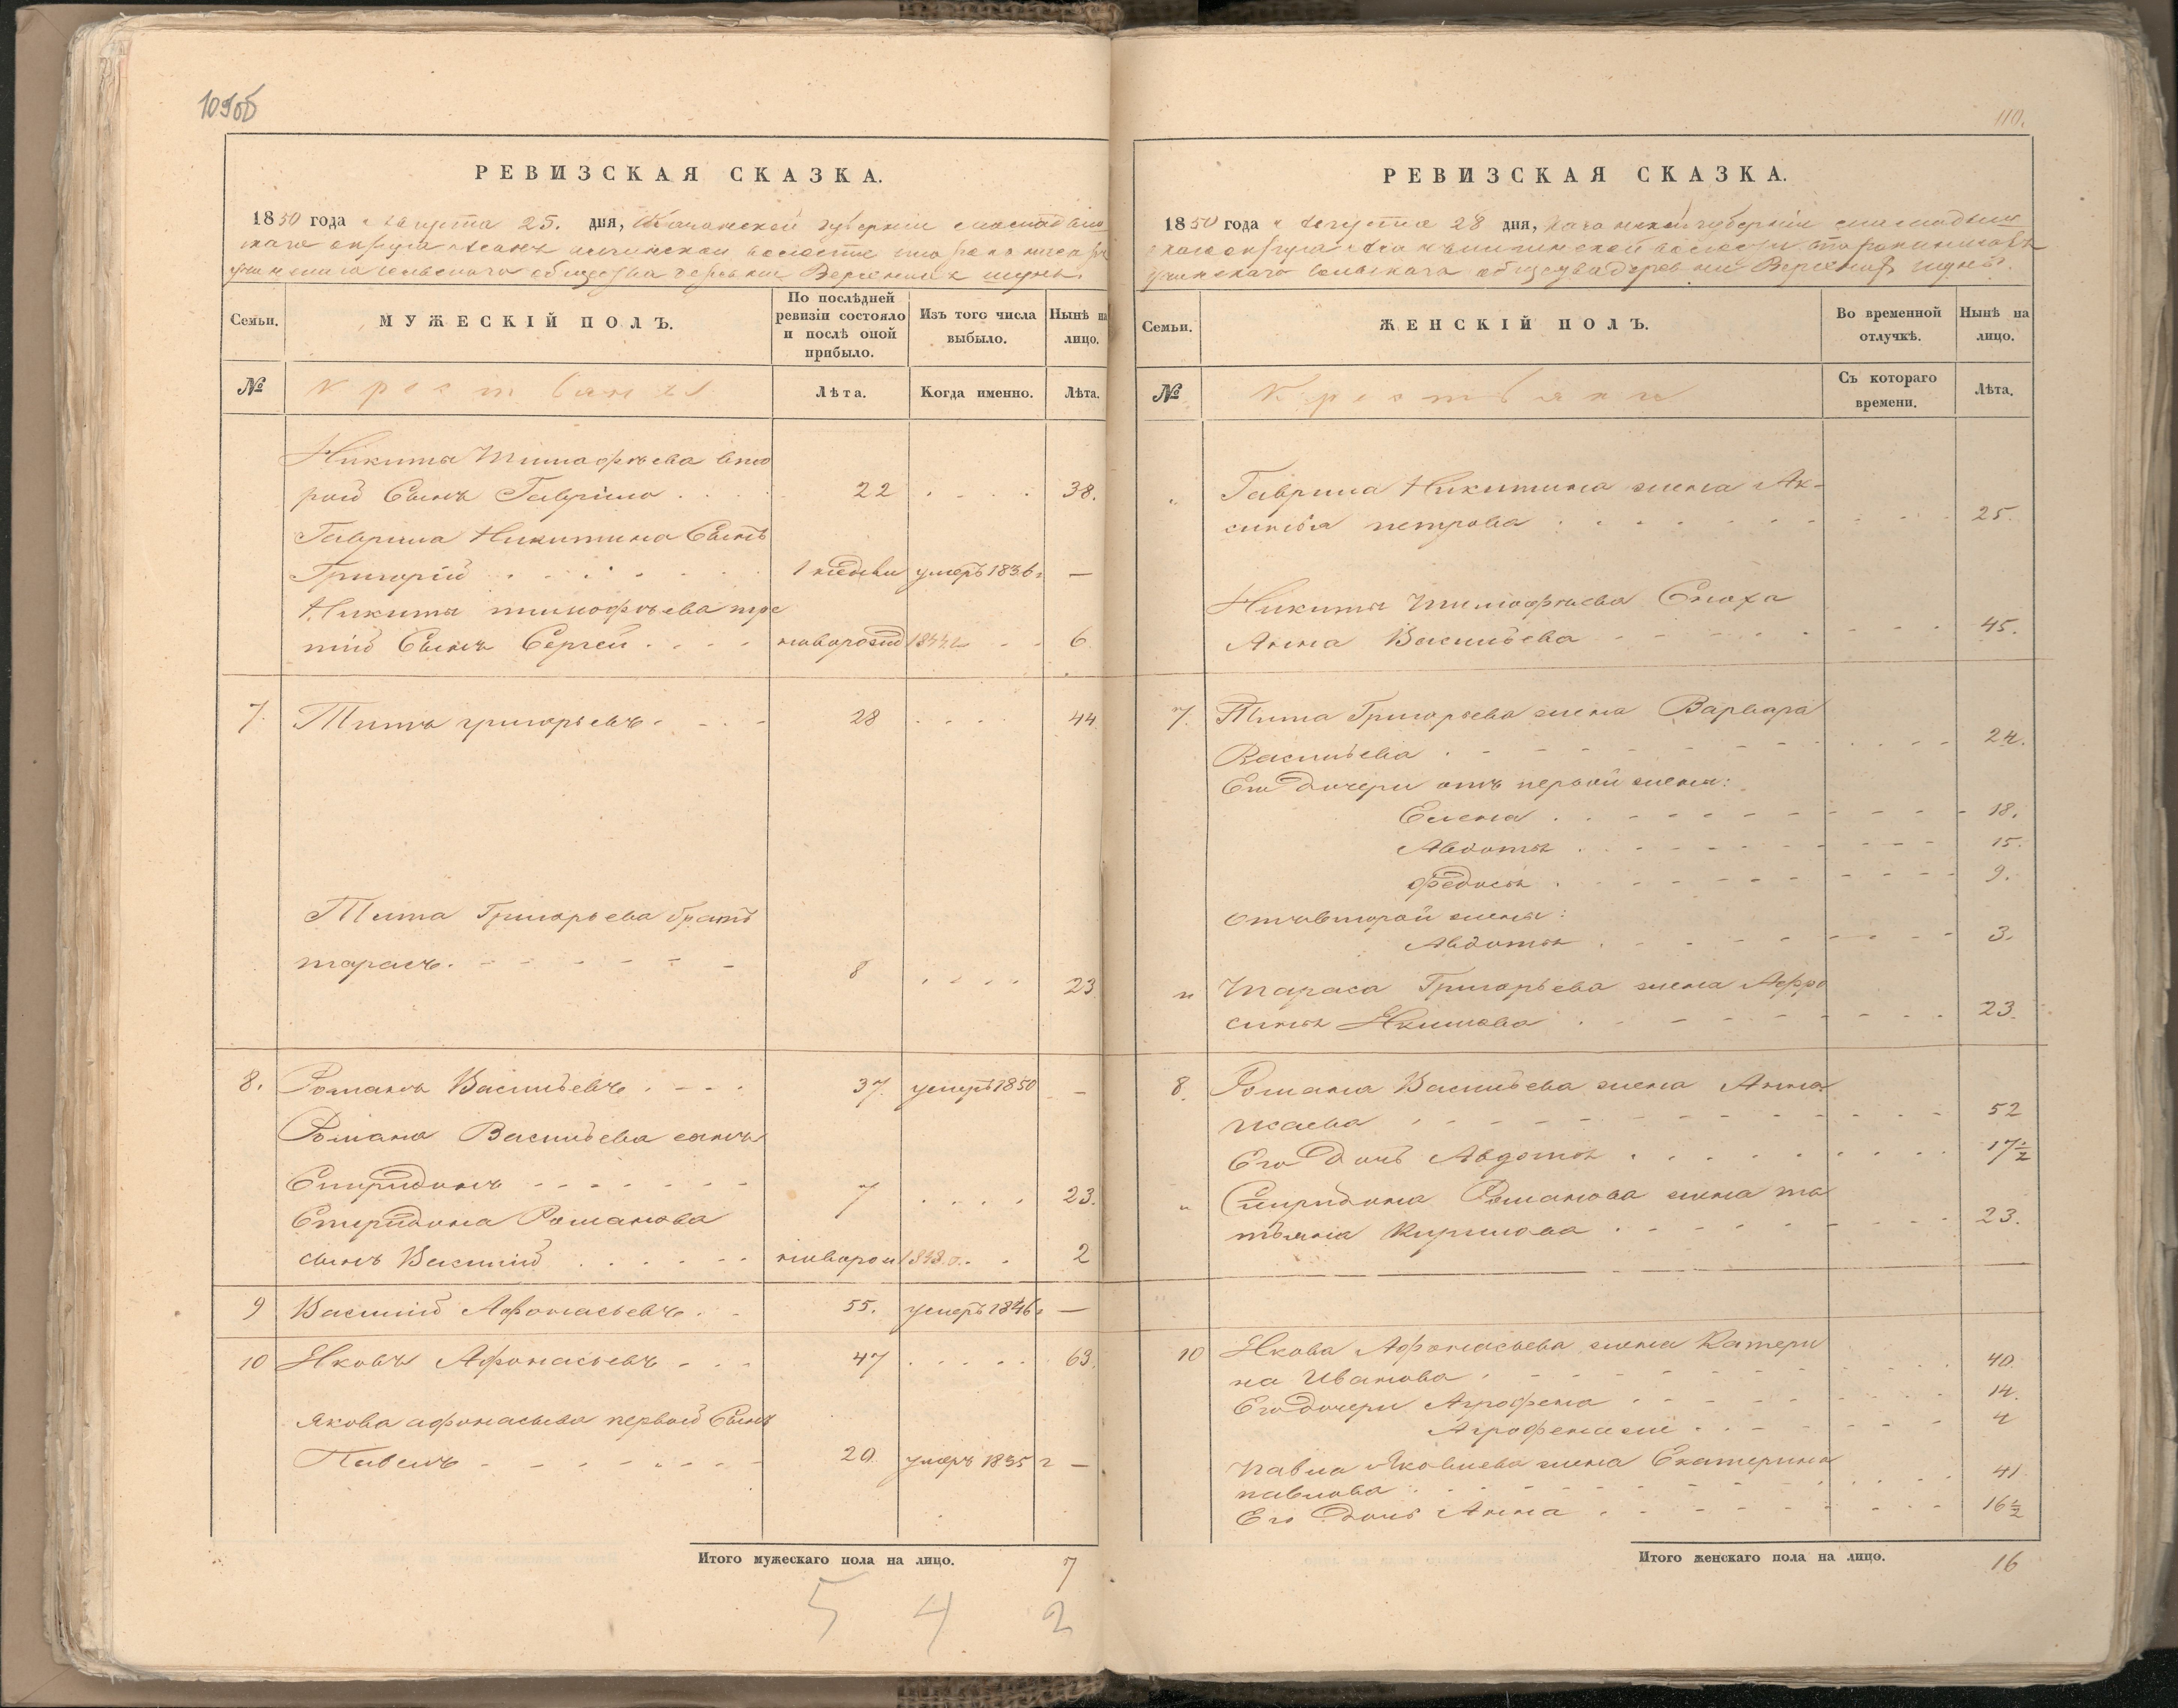 109об
РЕВИЗСКАЯ СКАЗКА.
1850 года Августа 25. дня, Казанской губернiи
округа волости
сельскаго общества деревни
Семьи.
МУЖЕСКІЙ ПОЛЪ.
По послѣдней ревизіи состояло и послѣ оной прибыло.
Изъ того числа выбыло.
Нынѣ на лицо.
№
Крестьяны
Лѣта.
Когда именно.
Лѣта.
Никиты Тимофѣева вто
рой Сынъ Гаврило . . . 22 . . . . 38.
Гаврила Никитина Сынъ
Григорій . . . . . 1 недѣли умеръ 1836 г —
Никиты тимофѣева тре
тій Сынъ Сергей . . . . новорожд 1844 г - - 6
7. Титъ григорьевъ . - - - 28 . . . . 44
Тита Григорьева братъ
тарасъ . - - - - - - 8 . . . . 23
8. Романъ Васильевъ . - - . 37. умеръ 1850 —
Романа Васильева сынъ
Спиридонъ - - - - - - - 7 . . . . 23.
Спиридона Романова
сынъ Василій . . . . - - новорож 1848 г. . 2
9 Василій Афонасьевъ . - 55. умеръ 1846 г —
10 Яковъ Афонасьевъ - - - 47 . . . . . 63.
якова афонасьева первой Сынъ
Павелъ - - - - - - - - 20. умеръ 1835 г —
Итого мужескаго пола на лицо. 7
5 4 2
110.
РЕВИЗСКАЯ СКАЗКА.
1850 года Августа 28 дня, казанской губернiи
округа волости
сельскаго общества деревни
Семьи.
ЖЕНСКІЙ ПОЛЪ.
Во временной отлучкѣ.
Нынѣ на лицо.
№
Крестьянки
Съ котораго времени.
Лѣта.
" Гаврила Никитина жена Ак-
синья петрова . . . . . . . . . . 25.
Никиты Тимофѣева Сноха
Анна Васильева - - - - - - - - - 45.
7. Тита Григорьева жена Варвара
Васильева . - - - - - - - . . - - 24.
Его Дочери отъ первой жены:
Елена . . - - - - - - - - - 18.
Авдотья . . - - - - - - - - 15.
Федосья . . - - - - - - - - 9.
Отъ второй жены:
Авдотья . . - - - - - - - 3.
" Тараса Григорьева жена Афро
синья Якимова . . - - - - - - . . 23.
8. Романа Васильева жена Анна
Исаева . . - - - - - - - - - 52
Его Дочь Авдотья . . . . . . . . . 17½
" Спиридона Романова жена та
тьяна Кирилова . . - - - - - - 23.
10 Якова Афонасьева жена Катери
на Иванова . - - - - - - - . . . 40.
Его дочери Агрофена . - - - - - - - 14.
4
Павла Яковлева жена Екатерина
павлова . . - - - - - - . . . . 41
Его Дочь Анна . . - - - - - - - 16½
Итого женскаго пола на лицо. 16